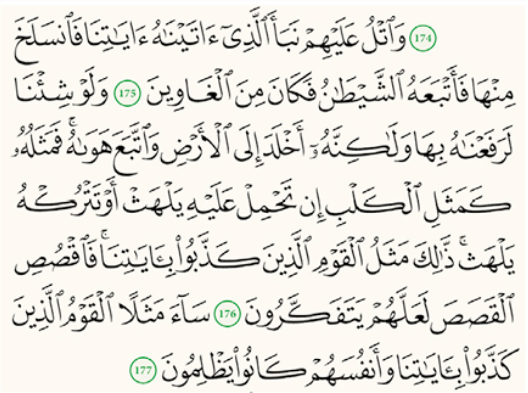 ١٧٤ وَٱتْلُ عَلَيْهِمْ نَبَأَ ٱلَّذِىٓ ءَاتَيْنَٰهُ ءَايَٰتِنَا فَٱنسَلَخَ
مِنْهَا فَأَتْبَعَهُ ٱلشَّيْطَٰنُ فَكَانَ مِنَ ٱلْغَاوِينَ ١٧٥ وَلَوْ شِئْنَا
لَرَفَعْنَٰهُ بِهَا وَلَٰكِنَّهُۥٓ أَخْلَدَ إِلَى ٱلْأَرْضِ وَٱتَّبَعَ هَوَىٰهُ ۚ فَمَثَلُهُۥ
كَمَثَلِ ٱلْكَلْبِ إِن تَحْمِلْ عَلَيْهِ يَلْهَثْ أَوْ تَتْرُكْهُ
يَلْهَث ۚ ذَّٰلِكَ مَثَلُ ٱلْقَوْمِ ٱلَّذِينَ كَذَّبُوا۟ بِـَٔايَٰتِنَا ۚ فَٱقْصُصِ
ٱلْقَصَصَ لَعَلَّهُمْ يَتَفَكَّرُونَ ١٧٦ سَآءَ مَثَلًا ٱلْقَوْمُ ٱلَّذِينَ
كَذَّبُوا۟ بِـَٔايَٰتِنَا وَأَنفُسَهُمْ كَانُوا۟ يَظْلِمُونَ ١٧٧